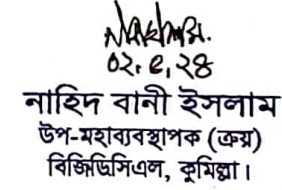 ০২.৫.২৪
নাহিদ বানী ইসলাম
উপ-মহাব্যবস্থাপক (ক্রয়)
বিজিডিসিএল, কুমিল্লা।